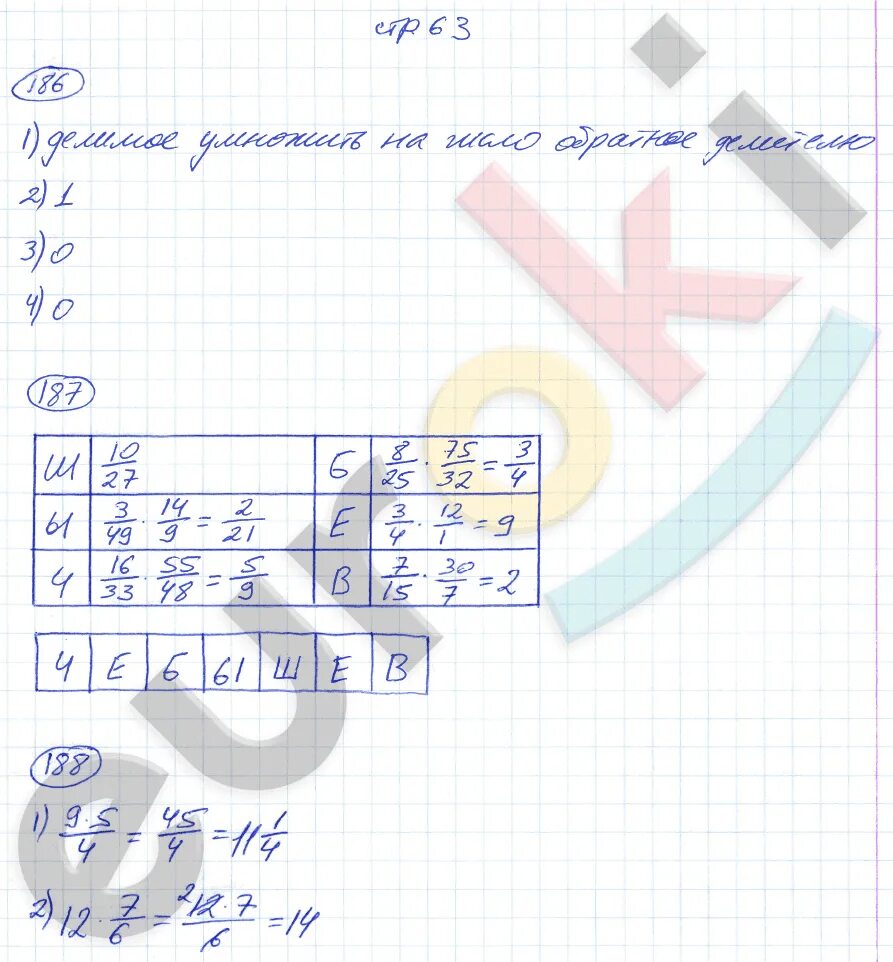 стр 63
186
1) делимое умножить на число обратное делителю
2) 1
3) 0
4) 0
187
Ш 10/27 Б 8/25 · 75/32 = 3/4
Ы 3/49 · 14/9 = 2/21 Е 3/4 · 12/1 = 9
Ч 16/33 · 55/48 = 5/9 В 7/15 · 30/7 = 2
Ч Е Б Ы Ш Е В
188
1) 9·5/4 = 45/4 = 11 1/4
2) 12 · 7/6 = 2 12·7/6 = 14
euroki